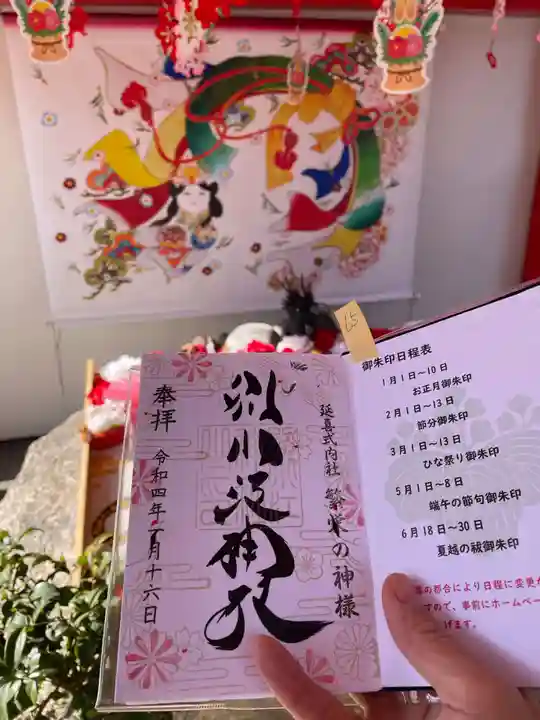 65
延喜式内社 繁栄の神様
別小江神社
奉拝
令和四年一月十六日
御朱印日程表
1月1日〜10日
お正月御朱印
2月1日〜13日
節分御朱印
3月1日〜13日
ひな祭り御朱印
5月1日〜8日
端午の節句御朱印
6月18日〜30日
夏越の祓御朱印
の都合により日程に変更が
すので、事前にホームペー
げます。